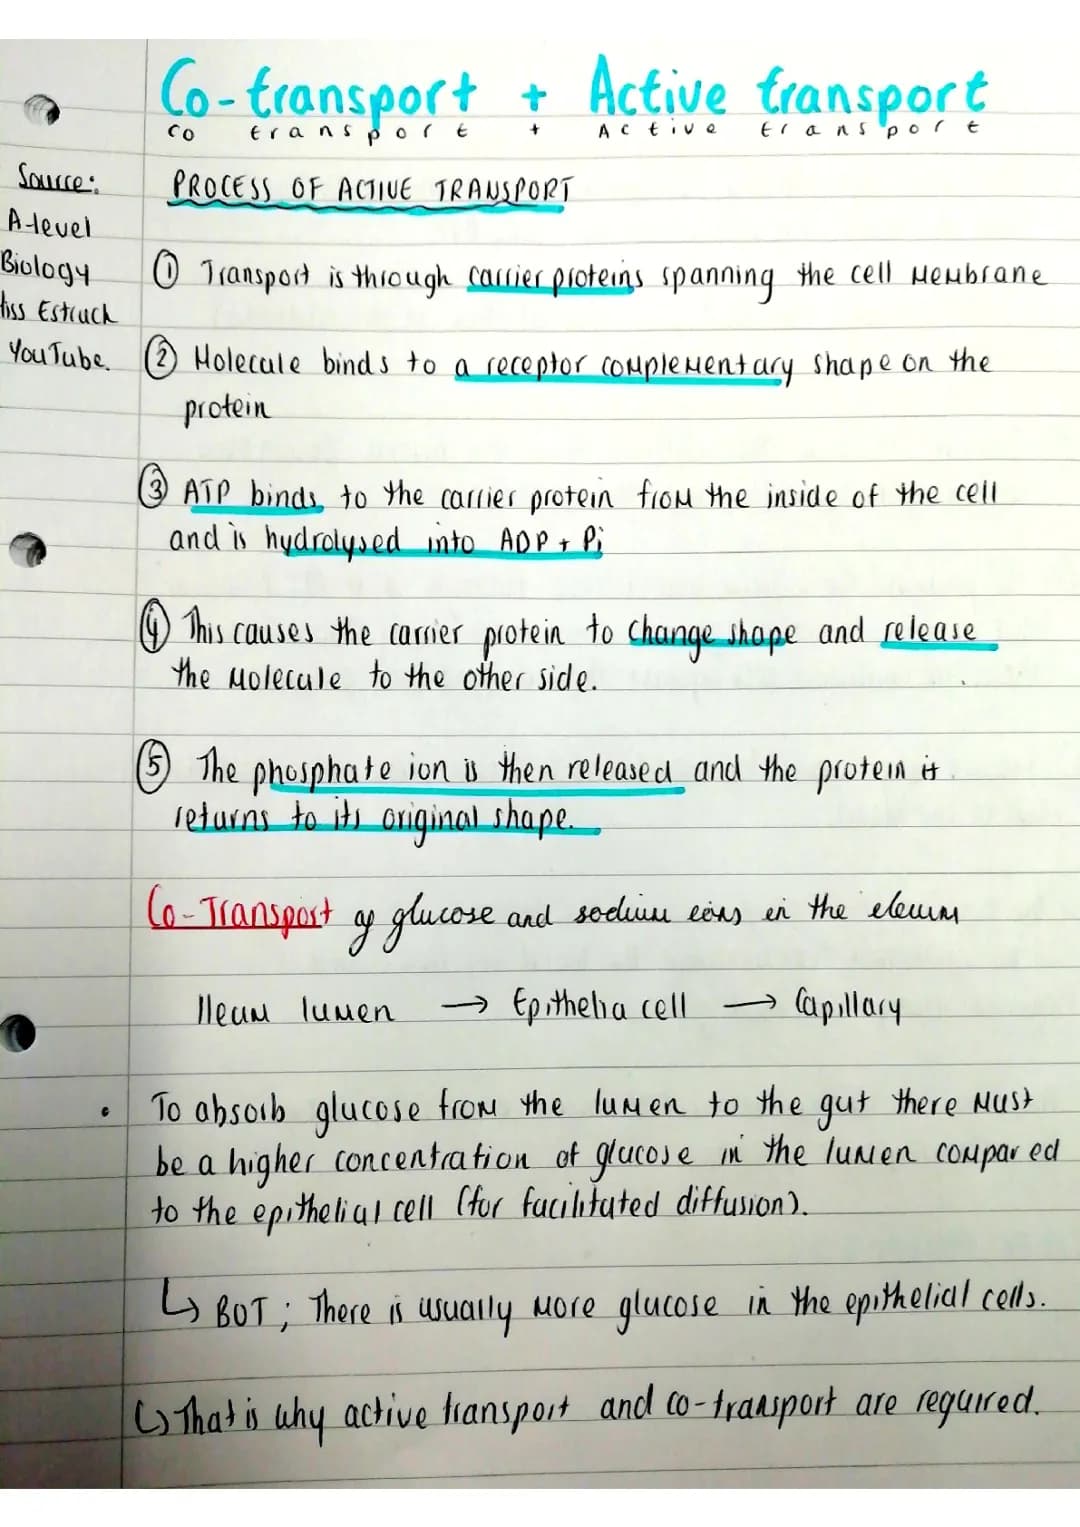 Co-transport + Active transport
co transport + Active transport
Source:
A-level
Biology
Miss Estruch
YouTube.
PROCESS OF ACTIVE TRANSPORT
① Transport is through carrier proteins spanning the cell membrane
② Molecule binds to a receptor complementary shape on the
protein
③ ATP binds to the carrier protein from the inside of the cell
and is hydrolysed into ADP + Pi
④ This causes the carrier protein to change shape and release
the molecule to the other side.
⑤ The phosphate ion is then released and the protein it
returns to its original shape.
Co-Transport of glucose and sodium ions in the ileum
Ileum lumen → Epithelia cell → Capillary
• To absorb glucose from the lumen to the gut there must
be a higher concentration of glucose in the lumen compared
to the epithelial cell (for facilitated diffusion).
↳ BUT; There is usually more glucose in the epithelial cells.
↳ That is why active transport and co-transport are required.